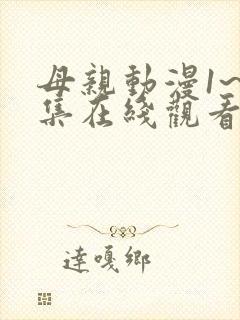 母親動漫1~
集在綫觀看
達嘎鄉